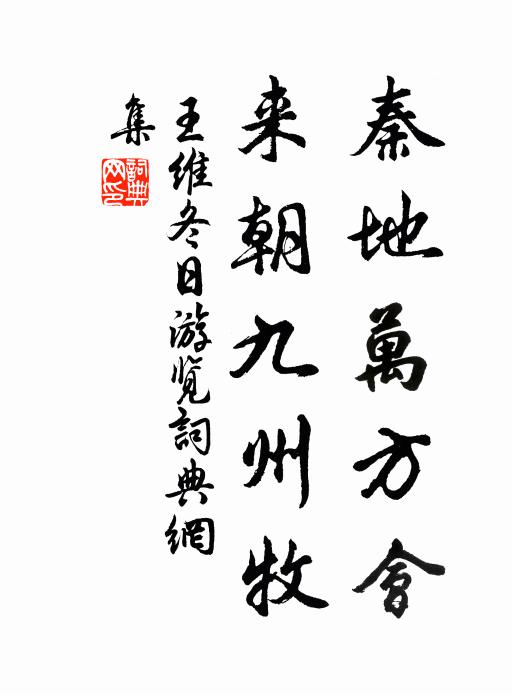 秦地萬方會
来朝九州牧
王维冬日游览詞典網
集
詞典网印